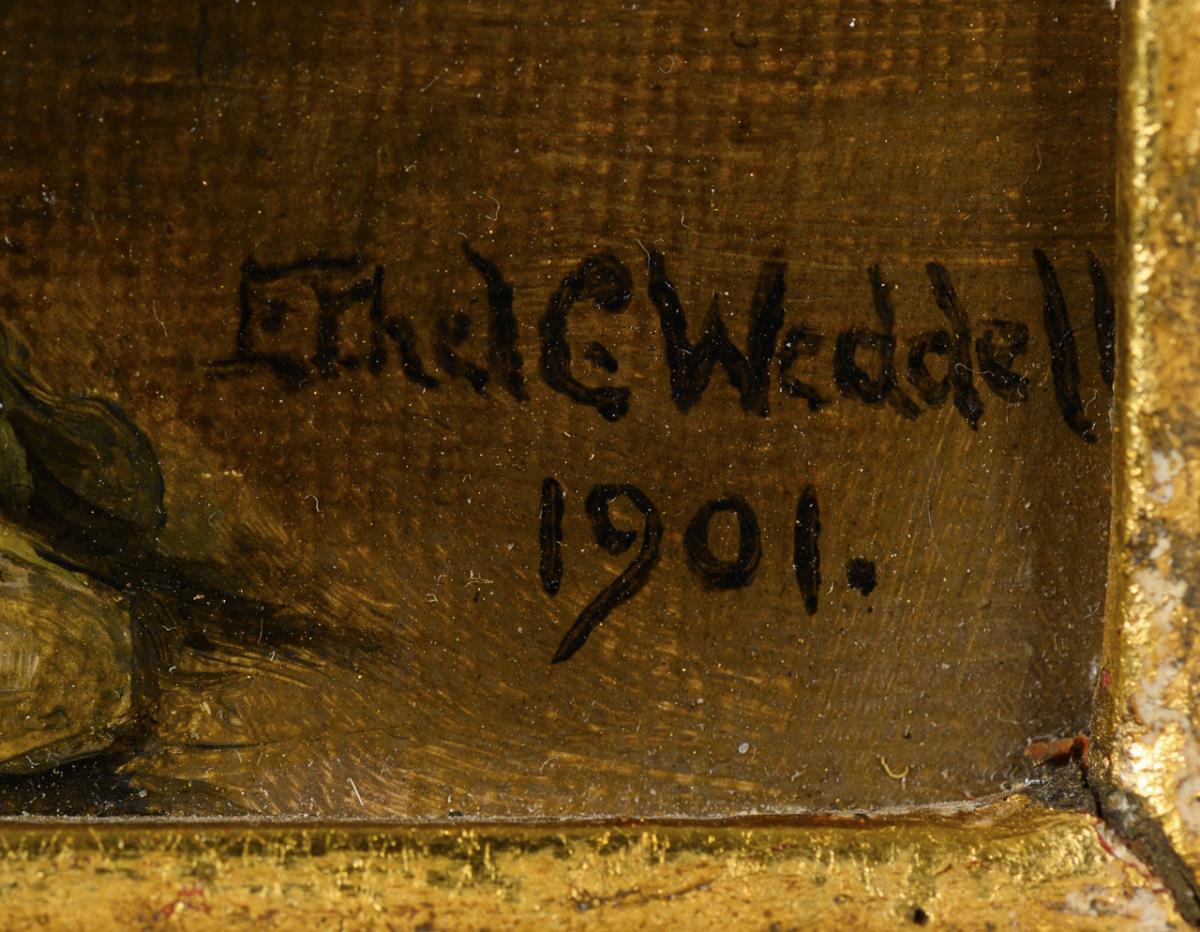 Ethel G Weddell
1901.